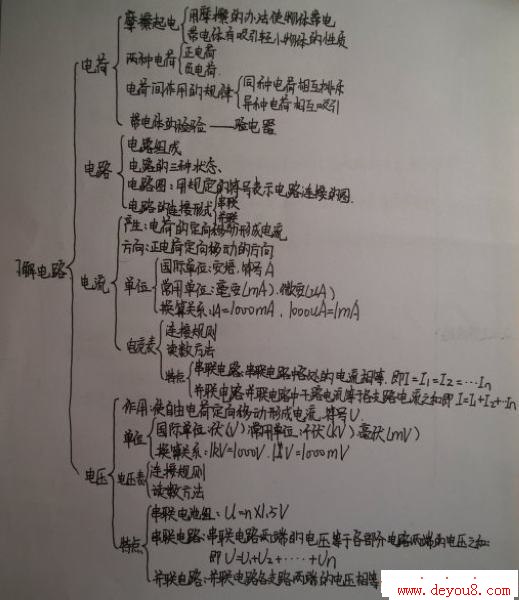 摩擦起电
用摩擦的办法使物体带电
带电体有吸引轻小物体的性质
电荷
两种电荷
正电荷
负电荷.
电荷间作用的规律
同种电荷相互排斥
异种电荷相互吸引
带电体的检验——验电器
电路组成
电路
电路的三种状态、
电路图:用规定的符号表示电路连接的图.
电路的连接形式
串联
并联
了解电路
产生:电荷的定向移动形成电流
方向:正电荷定向移动的方向
电流
单位
国际单位:安培.符号A
常用单位:毫安(mA).微安(uA)
换算关系:1A=1000mA.1000uA=1mA
电流表
连接规则
读数方法
特点
串联电路:串联电路中各处的电流相等.即I=I₁=I₂=⋯In
并联电路:并联电路中干路电流等于各支路电流之和即I=I₁+I₂+⋯In
作用:使自由电荷定向移动形成电流.符号U.
电压
单位
国际单位:伏(V)常用单位:千伏(kV)毫伏(mV)
换算关系:1kV=1000V.1V=1000mV
电压表
连接规则
读数方法
特点
串联电池组:U=n×1.5V
串联电路:串联电路两端的电压等于各部分电路两端的电压之和:
即U=U₁+U₂+⋯⋯+Un
并联电路:并联电路各支路两端的电压相等
www.deyou8.com